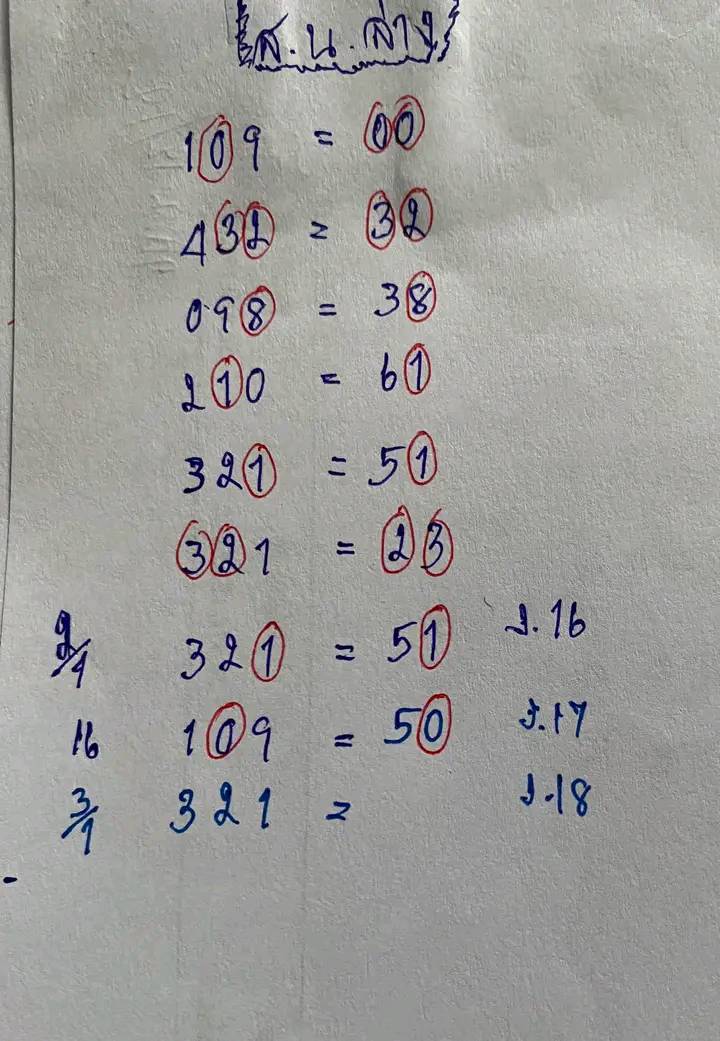 ส.น.ล่าง
109 = 00
432 = 32
098 = 38
210 = 61
321 = 51
321 = 23
2/1 321 = 51 ง.16
16 109 = 50 ง.17
3/1 321 = ง.18